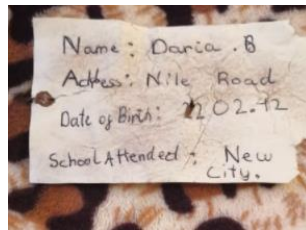 Name: Daria .B
Address: Nile Road
Date of Birth: 22.02.12
School Attended: New
City.